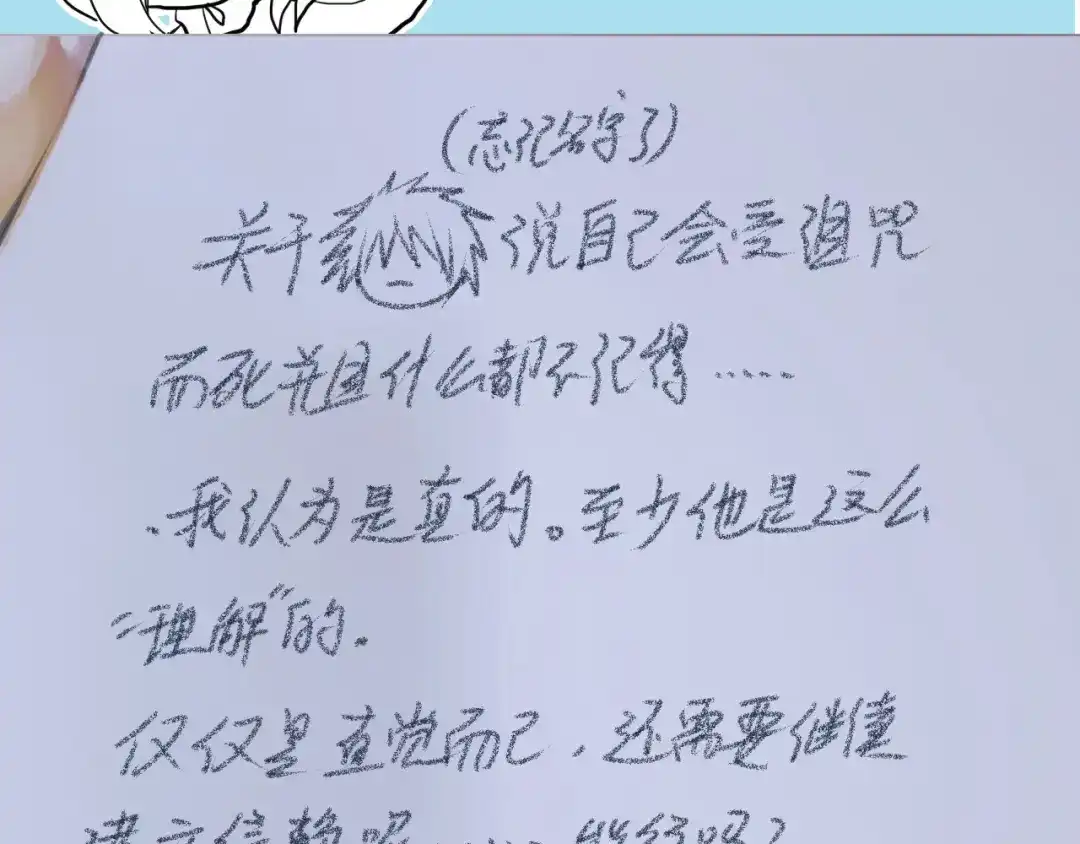 (忘记名字了)
关于 说自己会受诅咒
而死并且什么都不记得……
、我认为是真的。至少他是这么
“理解”的.
仅仅是直觉而已,还需要继续
建立信赖呢